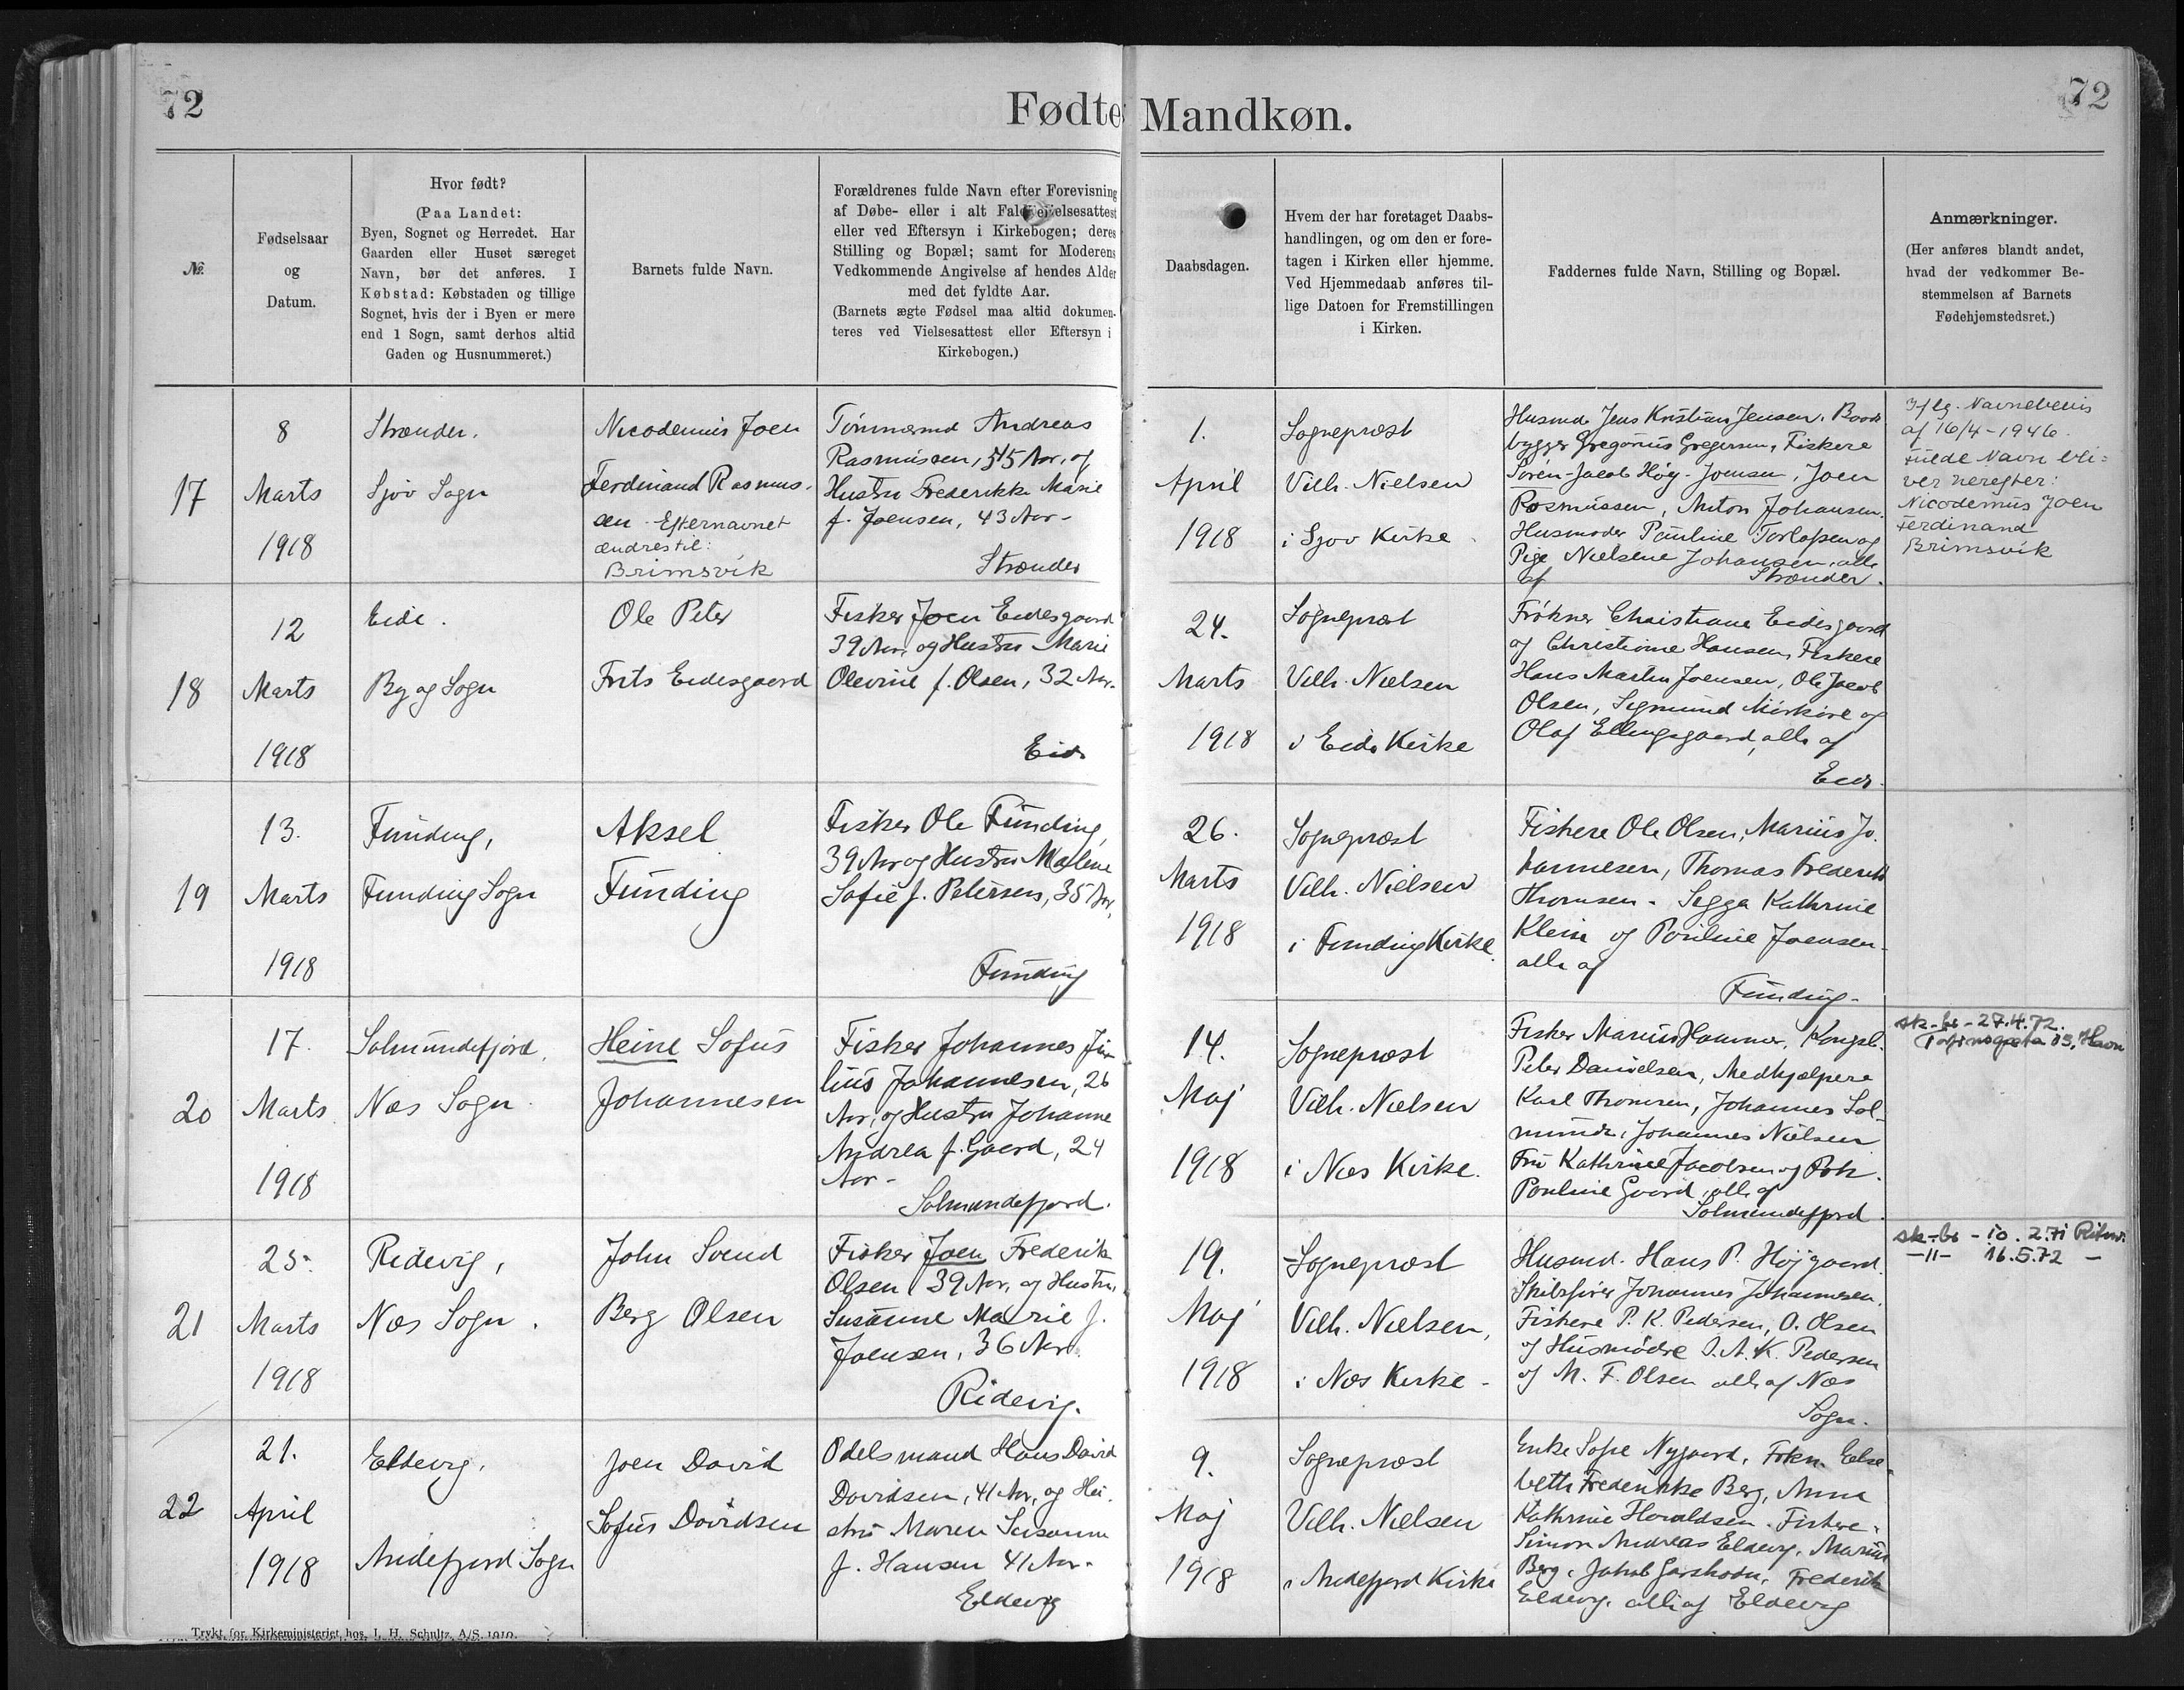 72
Fødte Mandkøn.
72
№
Fødselsaar
og
Datum.
Hvor født?
(Paa Landet:
Byen, Sognet og Herredet. Har
Gaarden eller Huset særeget
Navn, bør det anføres. I
Købstad: Købstaden og tillige
Sognet, hvis der i Byen er mere
end 1 Sogn, samt derhos altid
Gaden og Husnummeret.)
Barnets fulde Navn.
Forældrenes fulde Navn efter Forevisning
af Døbe- eller i alt Fald Vielsesattest
eller ved Eftersyn i Kirkebogen; deres
Stilling og Bopæl; samt for Moderens
Vedkommende Angivelse af hendes Alder
med det fyldte Aar.
(Barnets ægte Fødsel maa altid dokumen-
teres ved Vielsesattest eller Eftersyn i
Kirkebogen.)
Daabsdagen.
Hvem der har foretaget Daabs-
handlingen, og om den er fore-
tagen i Kirken eller hjemme.
Ved Hjemmedaab anføres til-
lige Datoen for Fremstillingen
i Kirken.
Faddernes fulde Navn, Stilling og Bopæl.
Anmærkninger.
(Her anføres blandt andet,
hvad der vedkommer Be-
stemmelsen af Barnets
Fødehjemstedsret.)
17
8
Marts
1918
Strænder.
Sjov Sogn
Nicodemus Joen
Ferdinand Rasmus-
sen. Efternavnet
ændres til:
Brimsvík
Tømmermd Andreas
Rasmussen, 55 Aar, og
Hustru Frederikke Marie
f. Joensen, 43 Aar-
Strænder
1.
April
1918
Sogneprest
Vilh. Nielsen
i Sjov Kirke
Husmd. Jens Kristian Jensen, Baad
bygger Gregorius Gregersen, Fiskere
Søren Jacob Høj-Joensen, Joen
Rasmussen, Anton Johansen.
Husmoder Pauline Torlofsen og
Pige Nielsine Johansen, alle
af Strænder.
Iflg. Navnebevis
af 16/4-1946.
Fulde Navn bli-
ver herefter:
Nicodemus Joen
Ferdinand
Brimsvík
18
12
Marts
1918
Eide.
By og Sogn
Ole Peter
Frits Eidesgaard
Fisker Joen Eidesgaard
39 Aar, og Hustru Marie
Olevine f. Olsen, 32 Aar.
Eide
24.
Marts
1918
Sogneprest
Vilh. Nielsen
i Eide Kirke
Frøkner Christiane Eidesgaard
og Christione Hansen, Fiskere
Hans Martin Joensen, Ole Jacob
Olsen, Sigmund Mørkøre og
Olaf Ellingsgaard, alle af
Eide.
19
13.
Marts
1918
Funding,
Funding Sogn
Aksel
Funding
Fisker Ole Funding,
39 Aar og Hustru Malene
Sofie f. Petersen, 35 Aar,
Funding
26.
Marts
1918
Sogneprest
Vilh. Nielsen
i Funding Kirke.
Fiskere Ole Olsen, Marius Jo-
hannesen, Thomas Frederik
Thomsen. Sigga Kathrine
Klein og Pouline Joensen
alle af
Funding.
20
17.
Marts
1918
Salmundefjord.
Næs Sogn.
Heine Sofus
Johannesen
Fisker Johannes Ju-
lius Johannesen, 26
Aar, og Hustru Johanne
Andrea f. Gaard, 24
Aar-
Salmundefjord.
14.
Maj
1918
Sogneprest
Vilh. Nielsen
i Næs Kirke.
Fisker Marius Hammer, Kongsb.
Peter Danielsen, Medhjælpere
Karl Thomsen, Johannes Sal-
munde, Johannes Nielsen
Fru Kathrine Jacobsen og Frk.
Pouline Gaard, alle af
Salmundefjord.
sk-br - 27.4.72.
21
25.
Marts
1918
Ridevig,
Næs Sogn.
John Svend
Berg Olsen
Fisker Joen Frederik
Olsen, 39 Aar, og Hustru
Susanne Marie f.
Joensen, 36 Aar.
Ridevig.
19.
Maj
1918
Sogneprest
Vilh. Nielsen,
i Næs Kirke-
Husmd. Hans P. Højgaard.
Skibsfører Johannes Johannesen,
Fiskere P. K. Pedersen, O. Olsen
og Husmødre J. A. K. Pedersen
og M. F. Olsen alle af Næs
Sogn.
sk-br - 10.2.71
-11- 16.5.72 -
22
21.
April
1918
Eldevig.
Andefjord Sogn
Joen David
Sofus Davidsen
Odelsmand Hans David
Davidsen, 41 Aar, og Hu-
stru Maren Susanne
f. Hansen 41 Aar.
Eldevig
9.
Maj
1918
Sogneprest
Vilh. Nielsen
i Andefjord Kirke
Enke Sofie Nygaard, Frkn. Else-
beth Frederikke Berg, Anna
Kathrine Haraldsen. Fiskere:
Simon Andreas Eldevig, Marius
Berg, Jakob Garshodn, Frederik
Eldevig, alle af Eldevig
Trykt for Kirkeministeriet hos J. H. Schultz A/S. 1910.